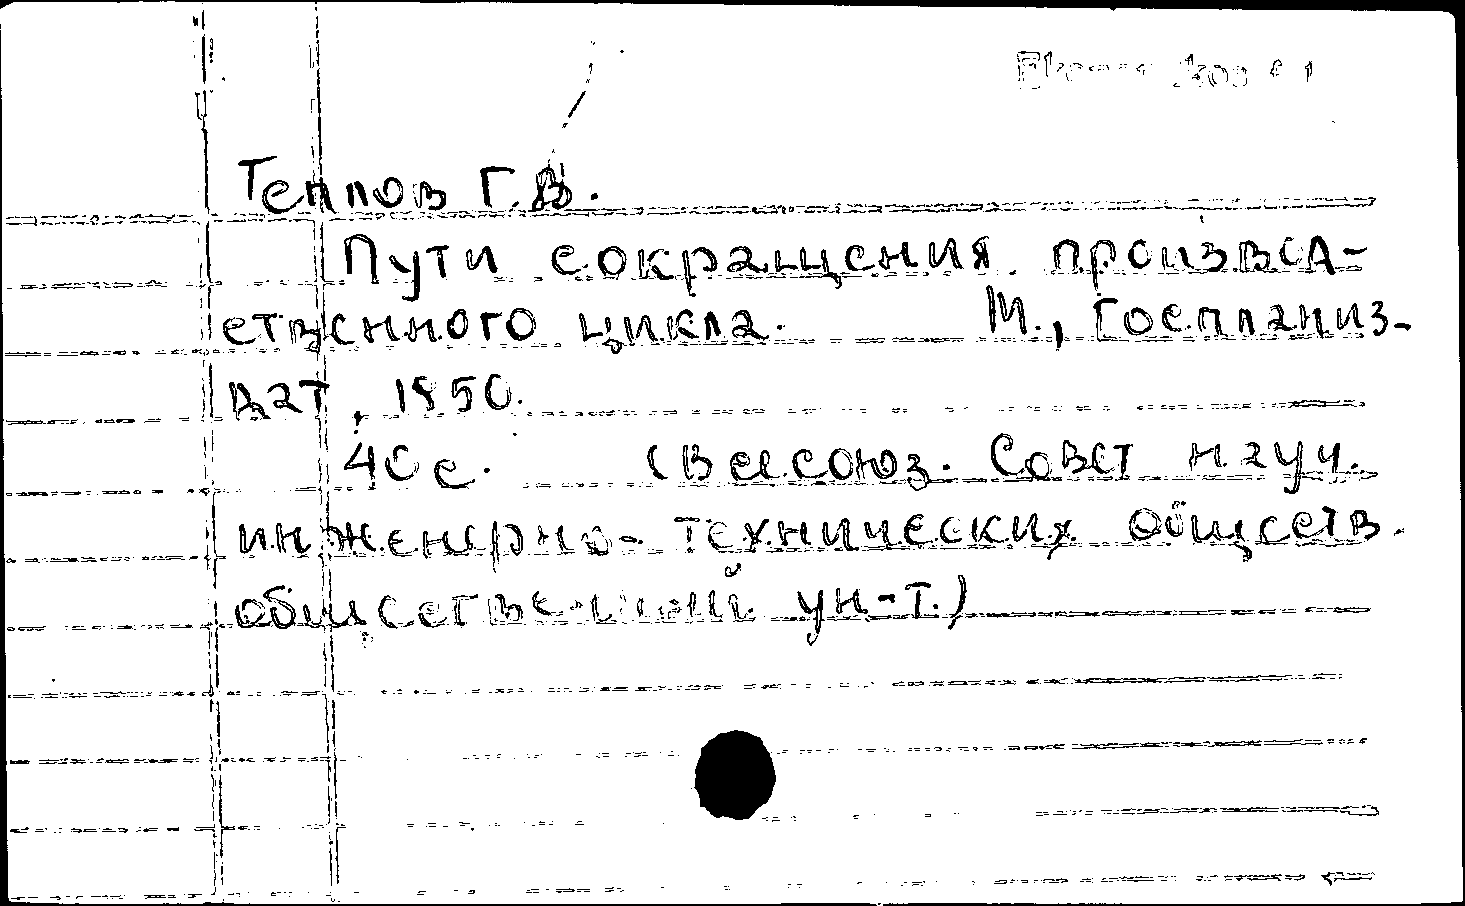 Теплов Г.В.
Пути сокращения производ-
ственного цикла. М., Госпланиз-
дат, 1950.
40 с. (Всесоюз. Совет науч.
инженерно-технических обществ.
общественный ун-т.)